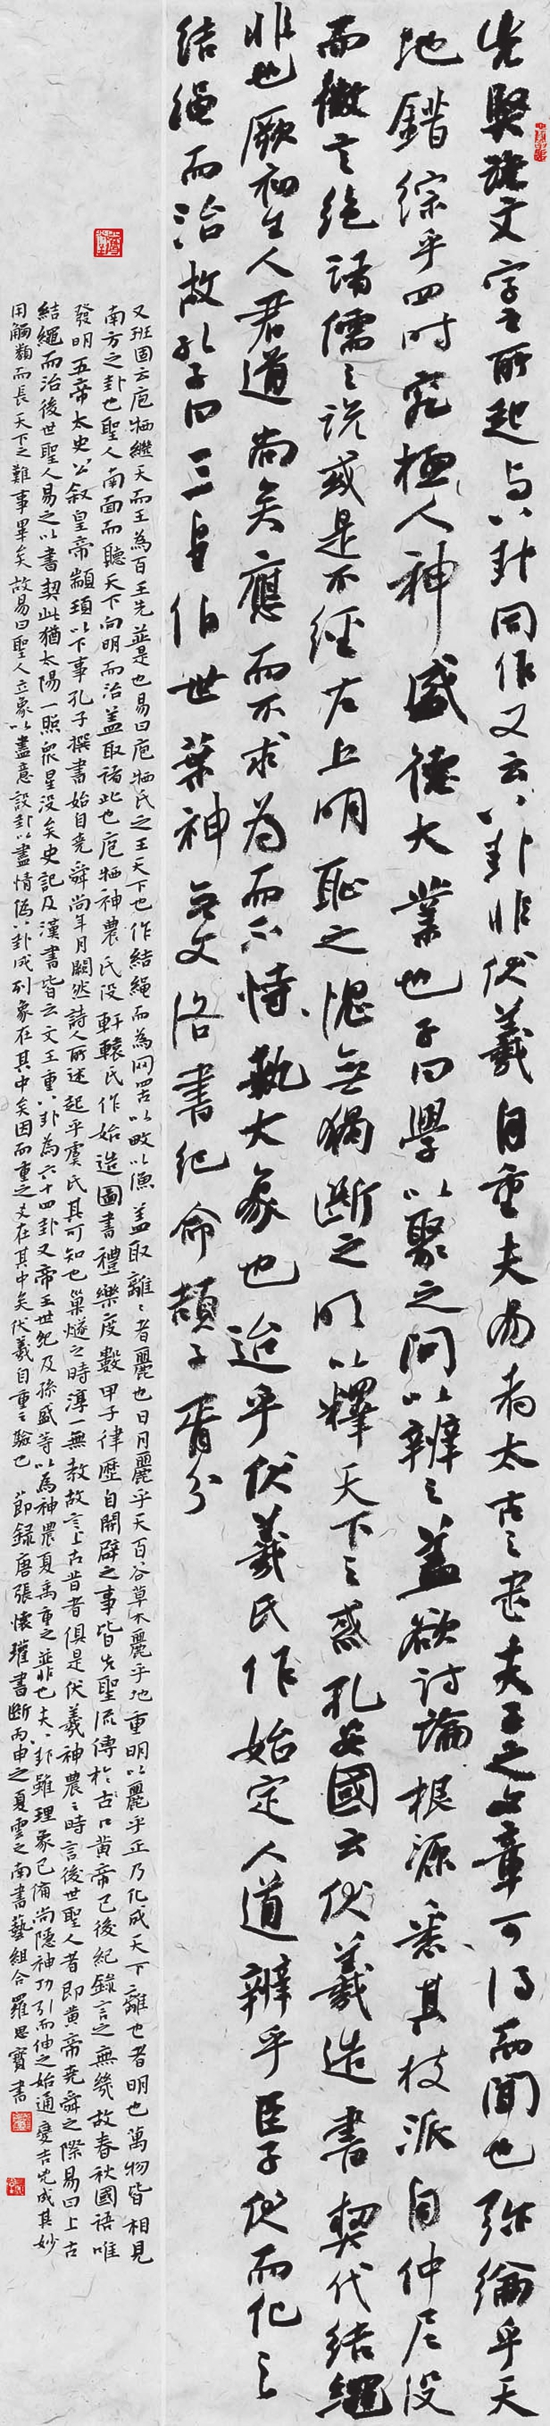 先賢說文字所起与八卦同作又云八卦非伏羲自重夫易者太古之書夫子之文章可得而聞也弥綸乎天
地錯綜乎四時究極人神盛德大業也子曰學以聚之問以辨之蓋欲討論根源悉其枝派自仲尼没
而微言绝諸儒之説或是不經左丘明恥之愧無獨斷之明以釋天下之惑孔安國云伏羲造書契代结繩
非也厥初生人君道尚矣應而不求為而不恃執大象也迨乎伏羲氏作始定人道辨乎臣子伏而化之
结绳而治故孔子曰三皇伯世葉神無文洛書紀命頡子胥分
又班固云庖牺繼天而王為百王先並是也易曰庖牺氏之王天下也作結繩而為网罟以畋以漁蓋取離離者麗也日月麗乎天百谷草木麗乎地重明以麗乎正乃化成天下離也者明也萬物皆相見
南方之卦也聖人南面而聽天下向明而治蓋取諸此也庖牺神農氏没軒轅氏作始造圖書禮樂度數甲子律歷自開辟之事皆先聖流傳於古口黄帝已後紀錄言之無幾故春秋國語唯
發明五帝太史公叙皇帝顓頊以下事孔子撰書始自堯舜尚年月闕然詩人所述起乎虞氏其可知也巢燧之時淳一無教故言上古昔者俱是伏羲神農之時言後世聖人者即黄帝堯舜之際易曰上古
結繩而治後世聖人易之以書契此猶太陽一照衆星没矣史記及漢書皆云文王重八卦為六十四卦又帝王世紀及孫盛等以為神農夏禹重之並非也夫八卦雖理象已備尚隱神功引而伸之始通變吉凶成其妙
用觸類而長天下之難事畢矣故易曰聖人立象以盡意設卦以盡情偽八卦成列象在其中矣因而重之爻在其中矣伏羲自重之驗也 節録唐張懷瓘書斷丙申之夏雲之南書藝組合羅思寳書